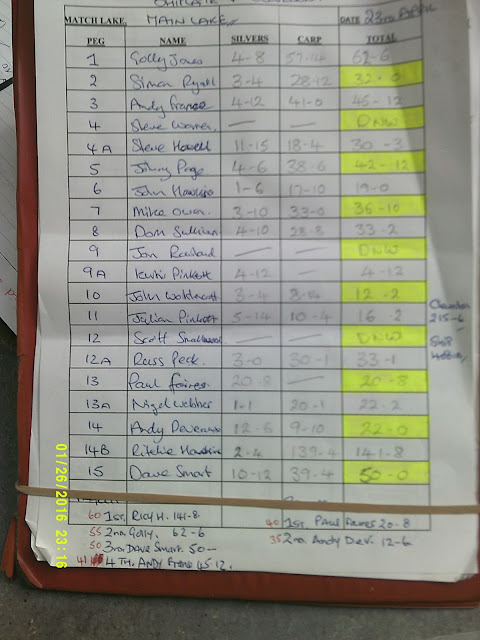 MATCH LAKE. MAIN LAKE DATE 23rd APRIL
PEG NAME SILVERS CARP TOTAL
1 Golly Jones 4-8 57-14 62-6
2 Simon Ryall 3-4 28-12 32-0
3 Andy France 4-12 41-0 45-12
4 Steve Warner. — — DNW
4A Steve Howell 11-15 18-4 30-3
5 Johny Page 4-6 38-6 42-12
6 John Hawkins 1-6 17-10 19-0
7 Mike Owen. 3-10 33-0 36-10
8 Dom Sullivan 4-10 28-8 33-2
9 Jon — — DNW
9A Pinkott 4-12 — 4-12
10 John 3-4 8-14 12-2
11 Julian Pinkott 5-14 10-4 16-2
12 Scott — — DNW
12A Russ Peck. 3-0 30-1 33-1
13 Paul Faires. 20-8 — 20-8
13A Nigel Webber 1-1 20-1 22-2
14 Andy 12-6 9-10 22-0
14B Ritchie 2-4 139-4 141-8
15 Dave Smart 10-12 39-4 50-0
215-6
60 1st. Rich H. 141-8
55 2nd. Golly. 62-6
50 3rd Dave Smart 50—
41 4TH. ANDY 45 12.
40 1st. PAUL Faires 20-8
35 2nd. Andy Dev. 12-6
01/26/2016 23:16